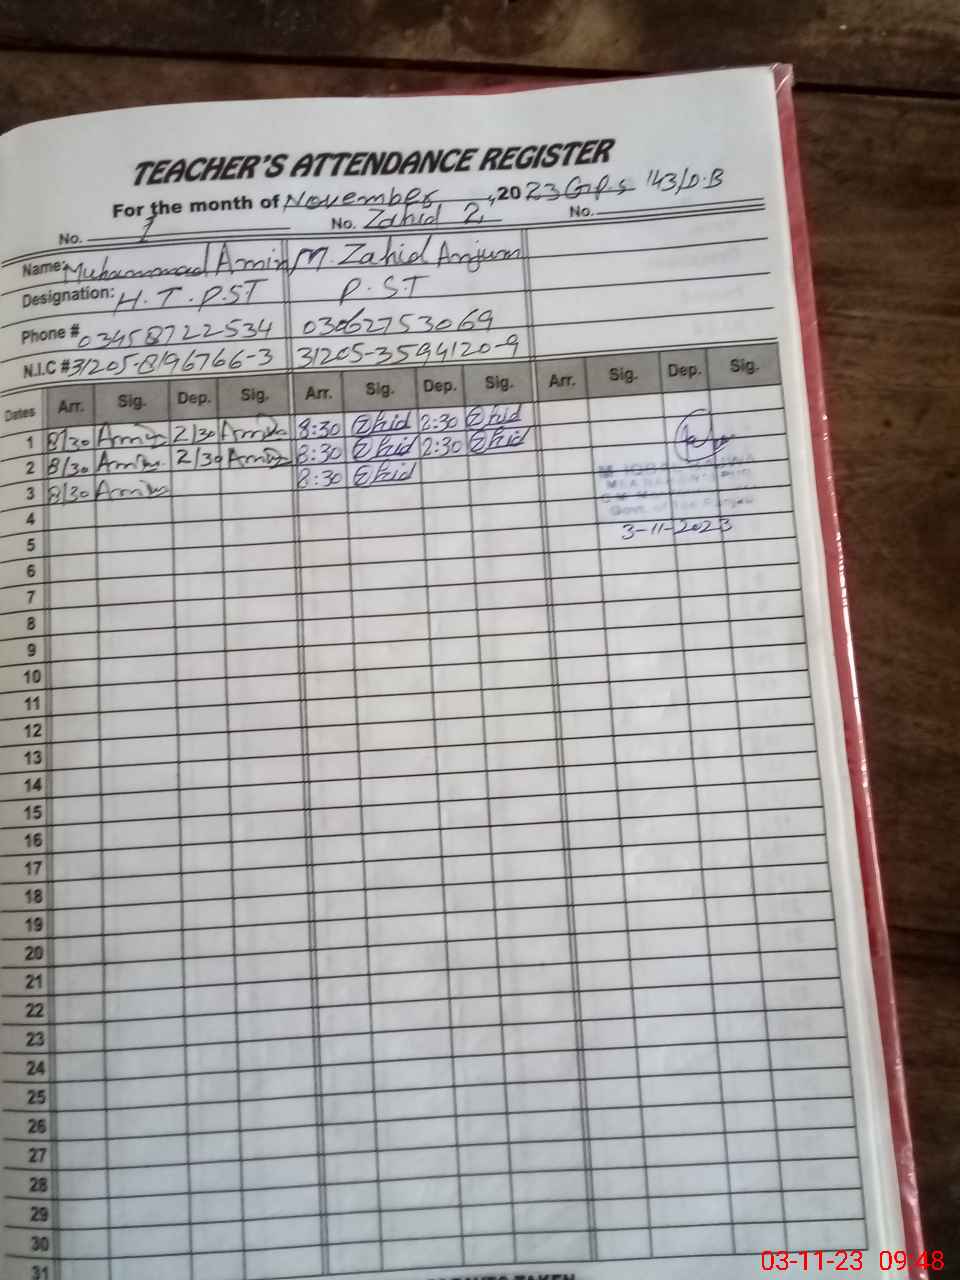 TEACHER'S ATTENDANCE REGISTER
For the month of November, 2023 G.P.S 143/D.B
No. 1 No. Zahid 2 No.
Name: Muhammad Amin M. Zahid Anjum
Designation: H.T. P.ST P.S.T
Phone # 03458722534 03062753069
N.I.C # 31205-8196766-3 31205-3594120-9
Dates Arr. Sig. Dep. Sig. Arr. Sig. Dep. Sig. Arr. Sig. Dep. Sig.
1 8/30 Amin 2/30 Amin 8:30 Zahid 2:30 Zahid
2 8/30 Amin 2/30 Amin 8:30 Zahid 2:30 Zahid
3 8/30 Amin 8:30 Zahid
Govt. of The Punjab
4
3-11-2023
5
6
7
8
9
10
11
12
13
14
15
16
17
18
19
20
21
22
23
24
25
26
27
28
29
30
31
03-11-23 09:48